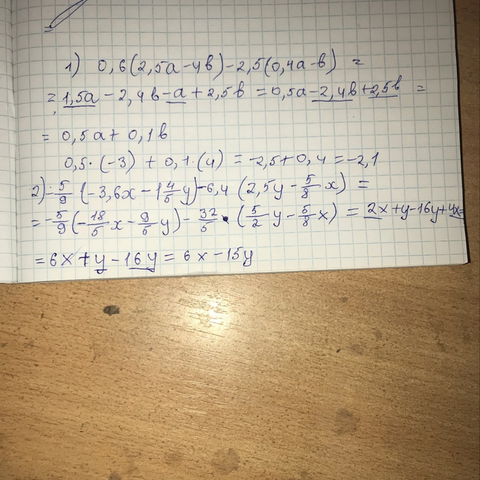 1) 0,6(2,5a-4b)-2,5(0,4a-b) =
= 1,5a - 2,4b - a + 2,5b = 0,5a - 2,4b + 2,5b =
= 0,5a + 0,1b
0,5·(-3) + 0,1·(4) = -2,5 + 0,4 = -2,1
2) -5/9 (-3,6x - 1 4/5 y) - 6,4 (2,5y - 5/8 x) =
= -5/9 (-18/5 x - 9/5 y) - 32/5 · (5/2 y - 5/8 x) = 2x + y - 16y + 4x =
= 6x + y - 16y = 6x - 15y